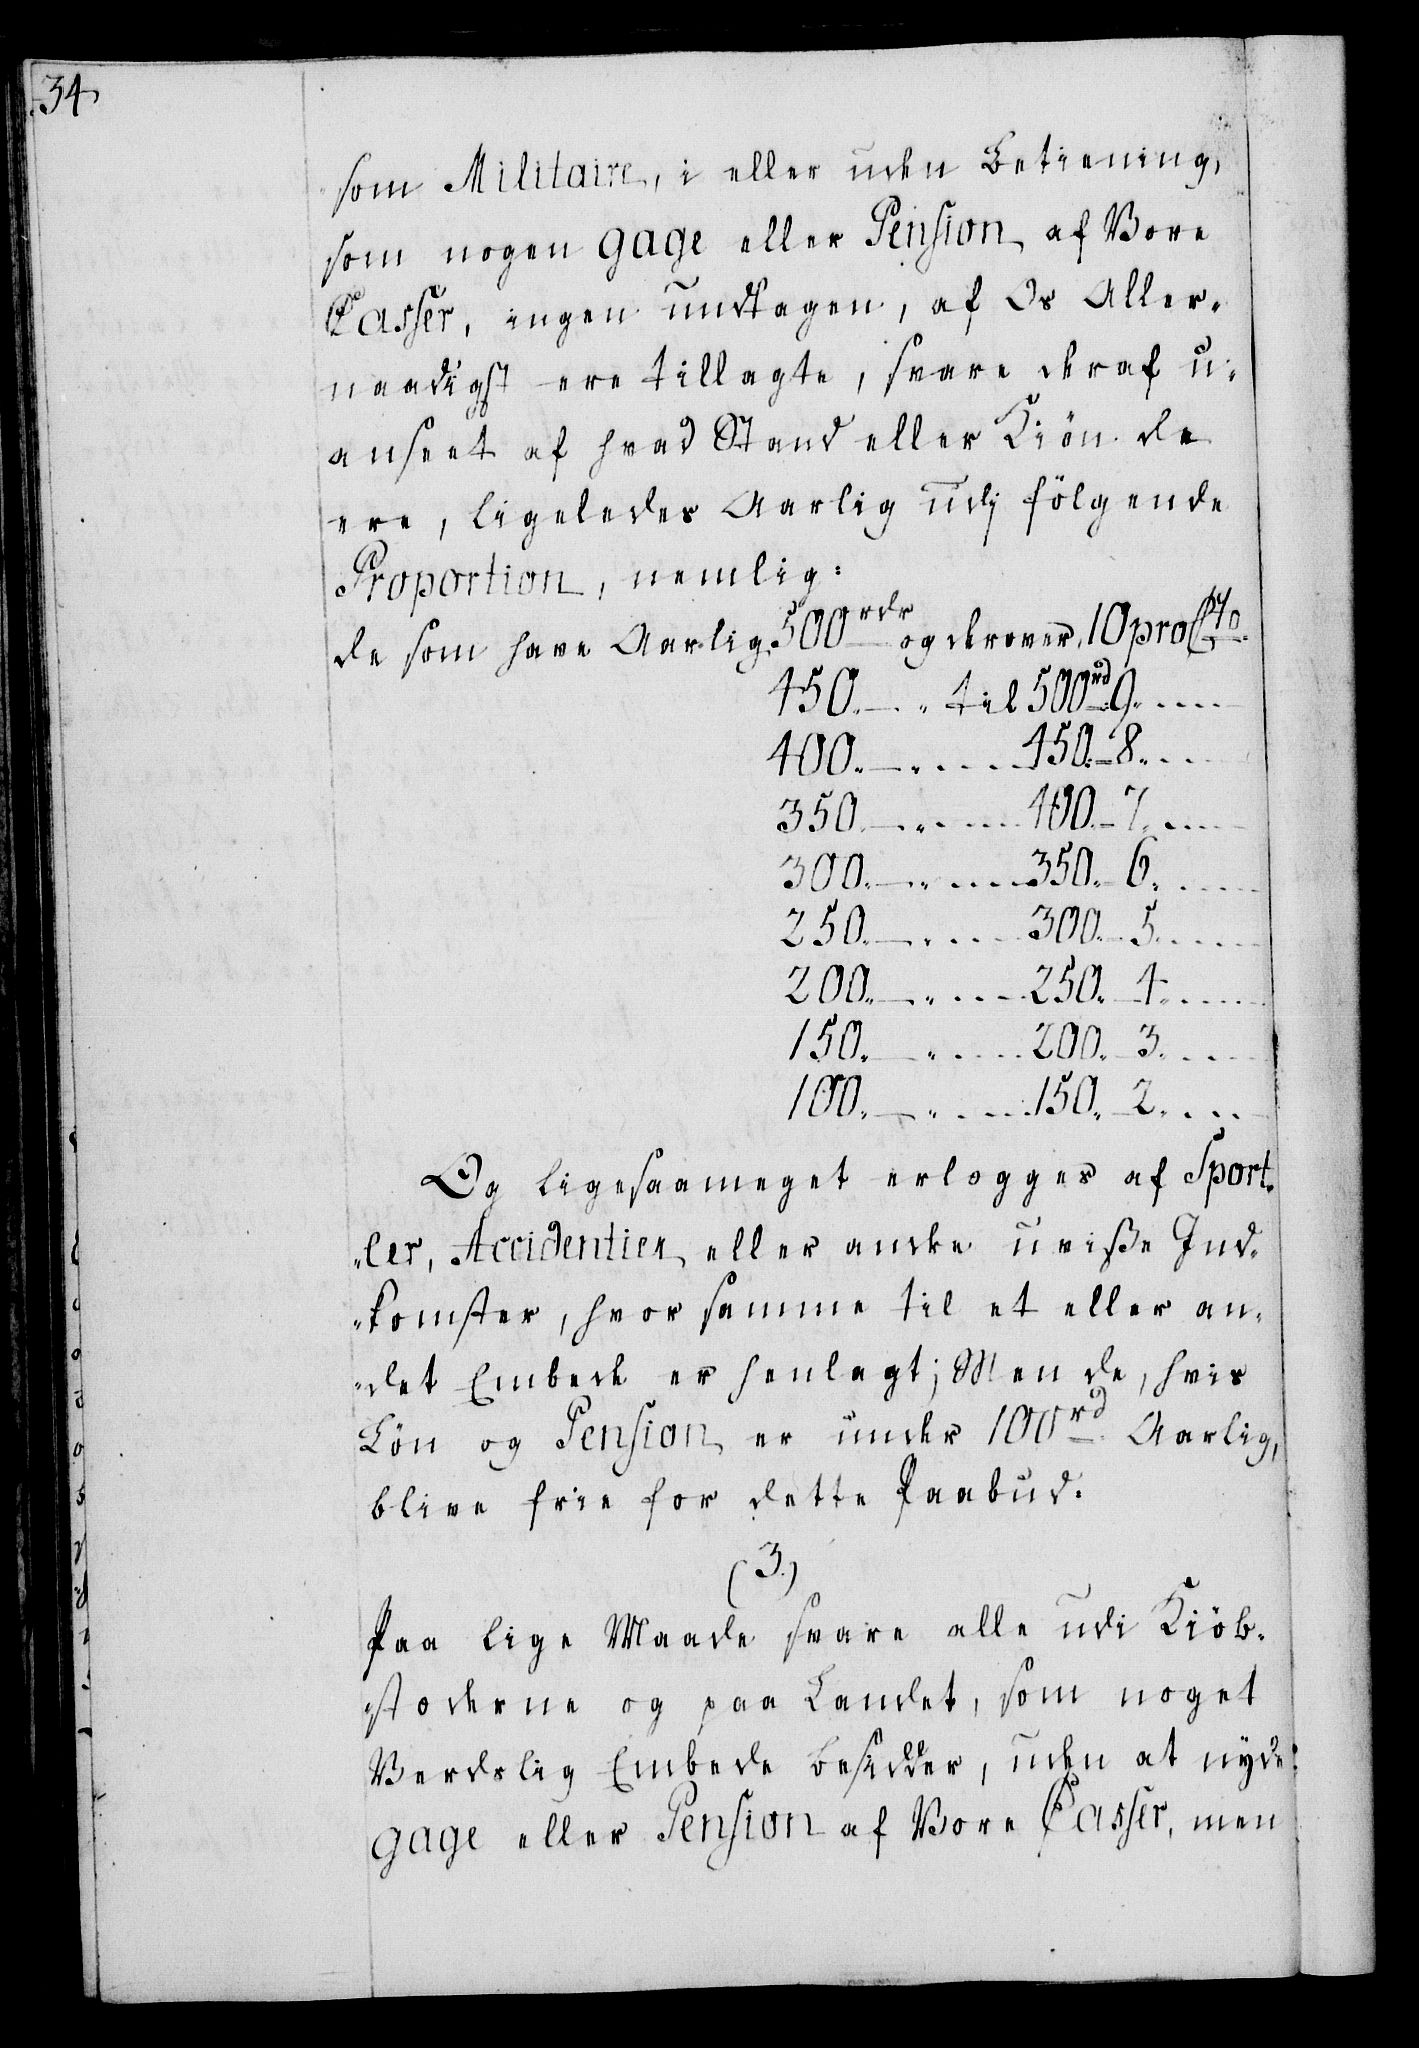 34
som Militaire, i eller uden Betiening,
som nogen gage eller Pension af Vore
Casser, ingen undtagen, af Os Aller-
naadigst ere tillagte, svare deraf u-
anseet af hvad Stand eller Kiön de
ere, ligeledes Aarlig udj fölgende
Proportion, nemlig:
de som have Aarlig 500 rdr og derover, 10 pro Cto
450. — . „ til 500 rd 9. . . . .
400. — . . . . 450. — 8. . . . .
350. — . . . . 400. — 7. . . . .
300. — . . . . 350. — 6. . . . .
250. — . . . . 300. — 5. . . . .
200. — . . . . 250. — 4. . . . .
150. — . . . . 200. — 3. . . . .
100. — . . . . 150. — 2. . . . .
Og ligesaameget erlægges af Sport-
„ler, Accidentier eller andre uviße Ind-
„komster, hvor samme til et eller an-
„det Embede er henlagt; Men de, hvis
Lön og Pension er under 100 rd Aarlig,
blive frie for dette Paabud.
(3.)
Paa lige Maade svare alle udi Kiöb-
stæderne og paa Landet, som noget
Verdslig Embede besidder, uden at nyde
gage eller Pension af Vore Casser, men